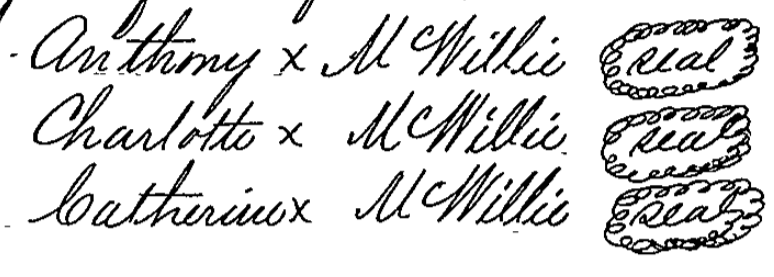 Anthony x McWillie seal
Charlotte x McWillie seal
Catherine x McWillie seal